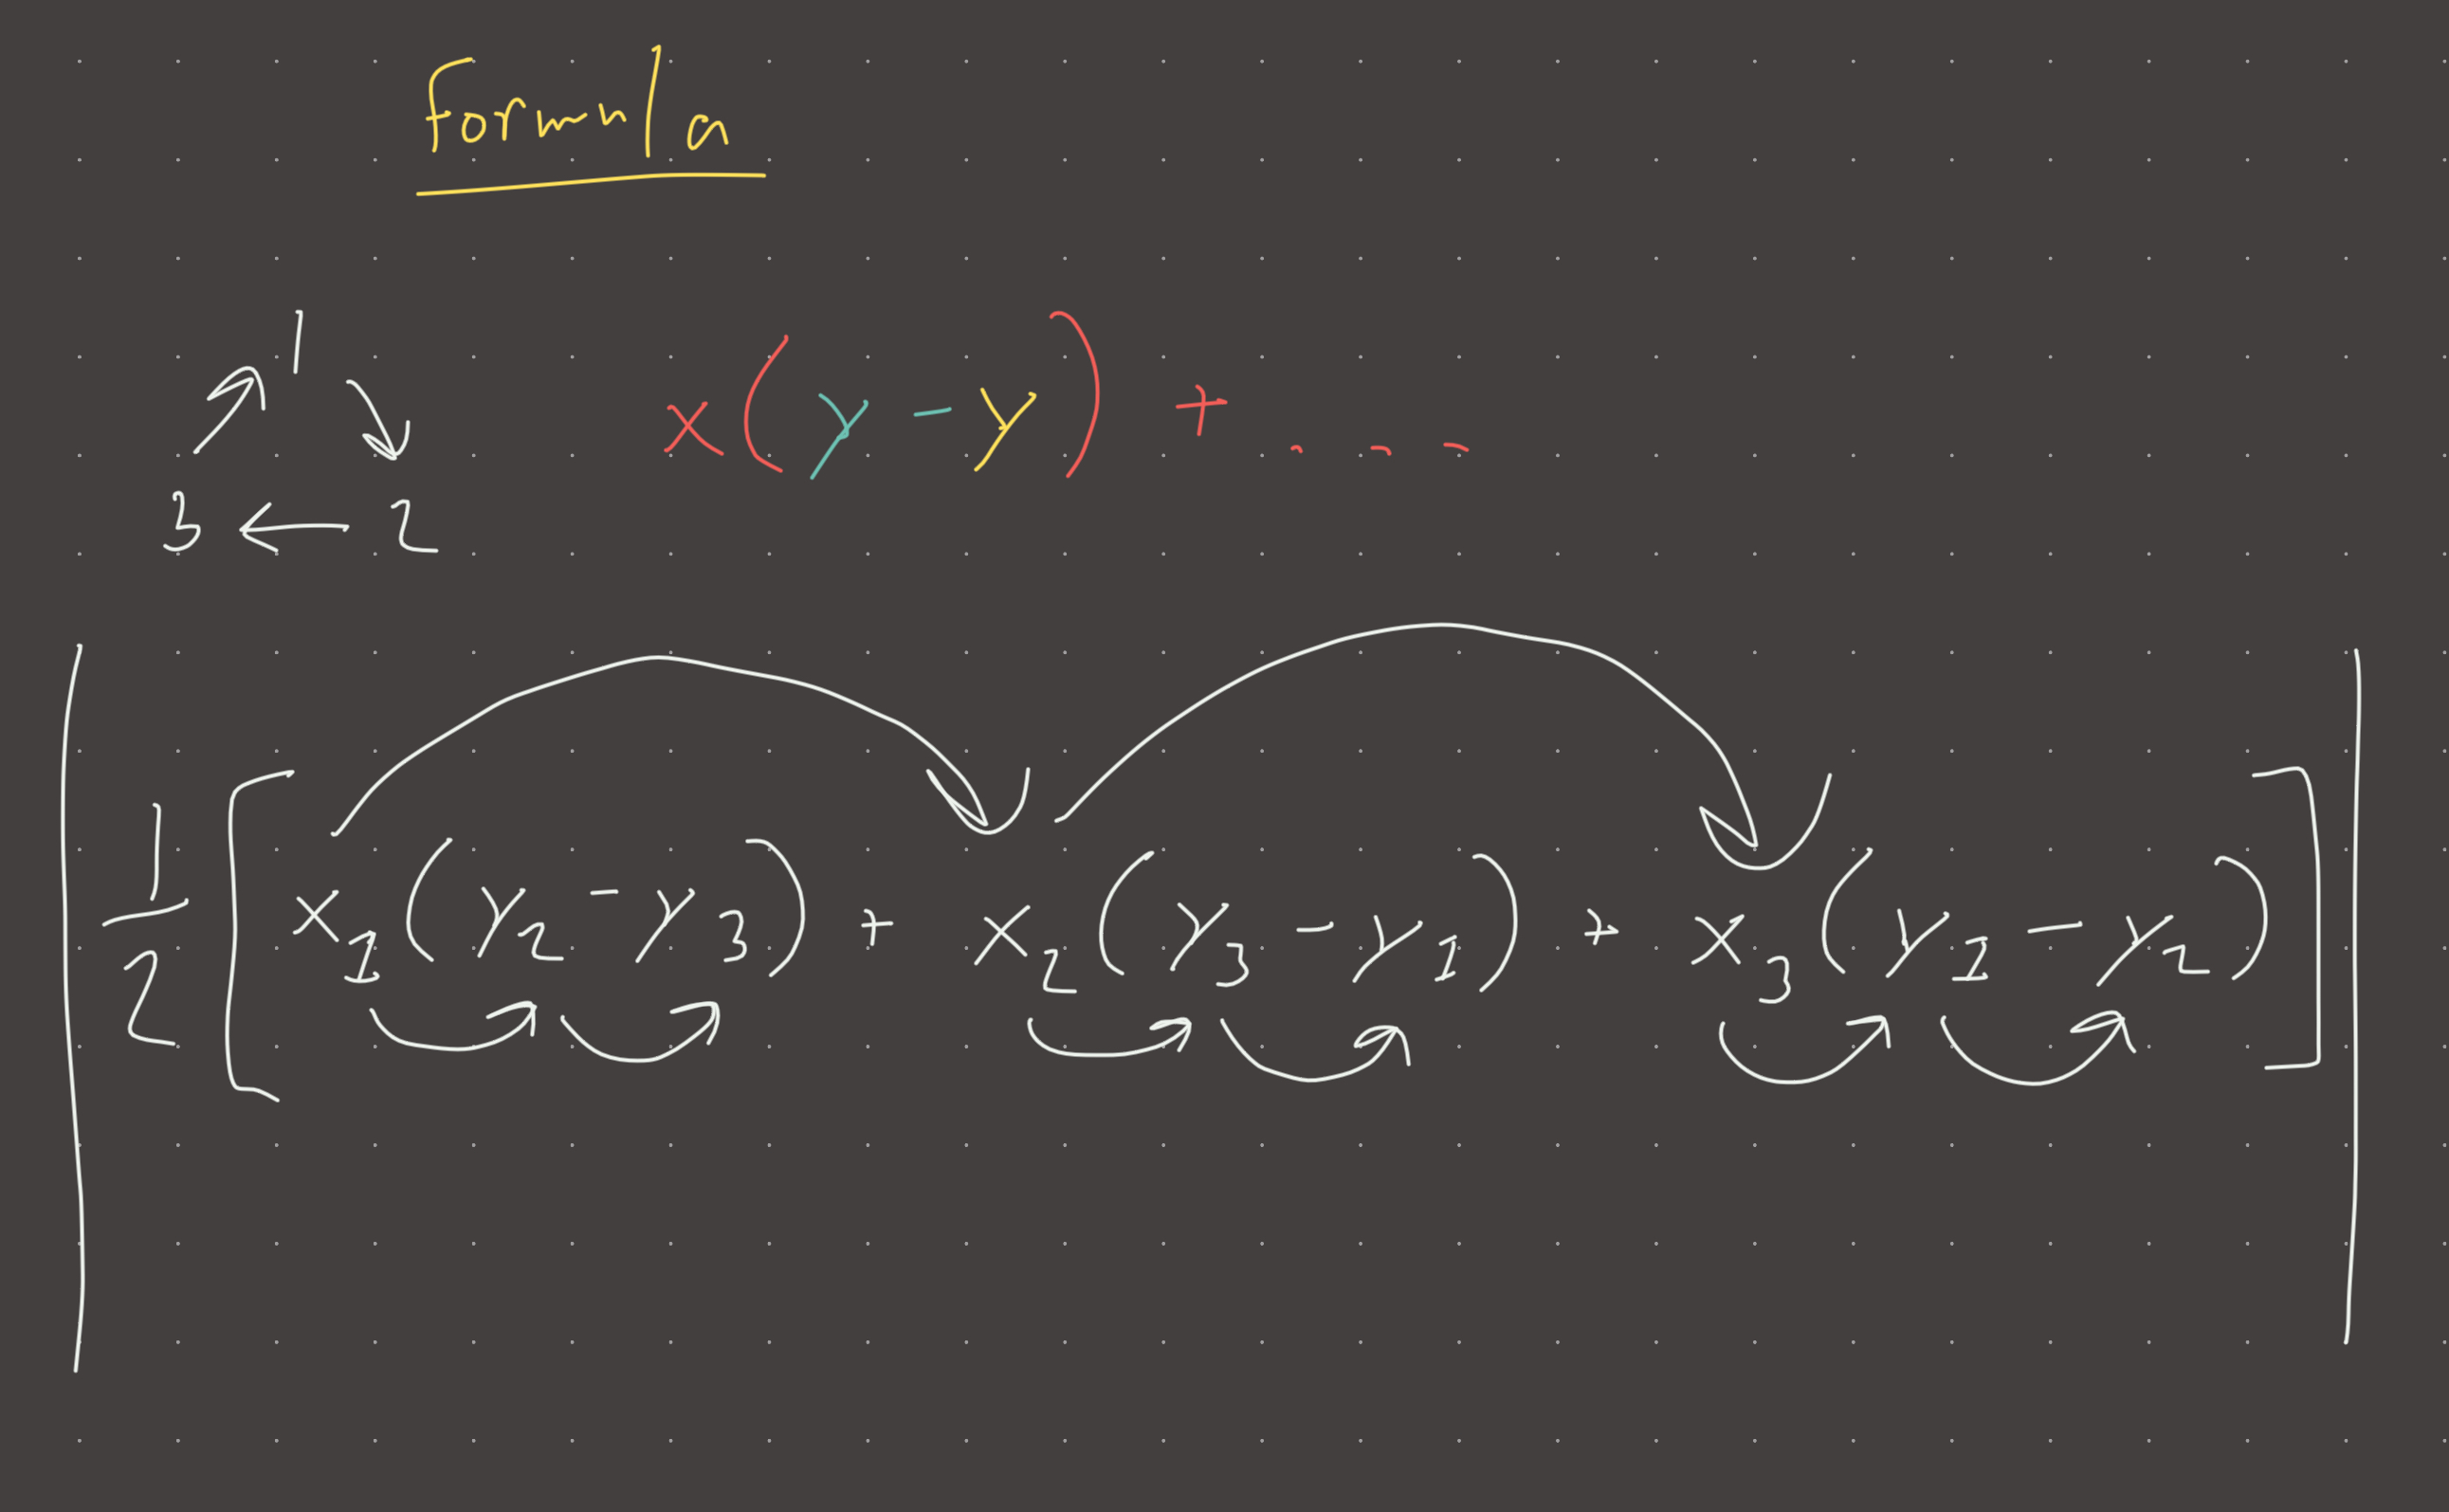 Formula
1
x(y - y) + . . .
3 ← 2
| 1/2 [ x₁(y₂ - y₃) + x₂(y₃ - y₁) + x₃(y₁ - y₂) ] |